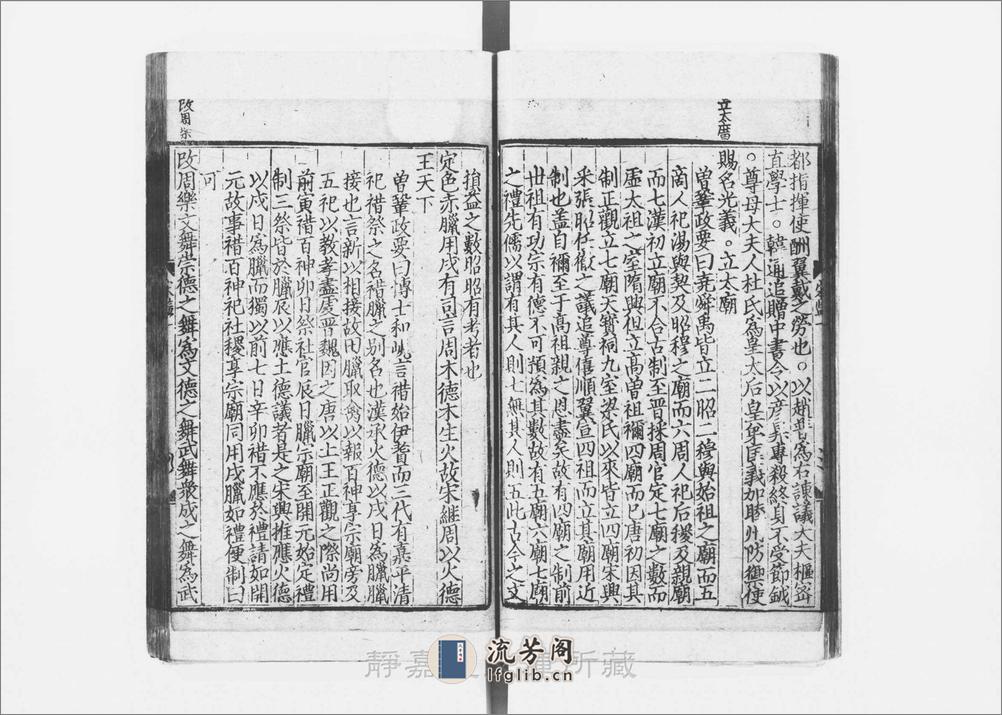 立太廟
都指揮使酬翼戴之勞也。以趙普為右諫議大夫樞密
直學士。韓通追贈中書令以彦昇專殺終身不受節鉞
。尊母大夫人杜氏為皇太后皇弟匡義加睦州防禦使
賜名光義。立太廟
曾鞏政要曰堯舜禹皆立二昭二穆與始祖之廟而五
商人祀湯與契及昭穆之廟而六周人祀后稷及親廟
而七漢初立廟不合古制至晉採周官定七廟之數而
虛太祖之室隋興祖立高曾祖禰四廟而已唐初因其
制正觀立七廟天寶祠九室梁氏以來皆立四廟宋興
采張昭任徹之議追尊僖順翼宣四祖而立其廟用近
制也盖自禰至于高祖親之恩盡矣故有四廟之制前
世祖有功宗有德不可預為其數故有五廟六廟七廟
之禮先儒以謂有其人則七無其人則五此古今之文
損益之數昭昭有考者也
定色赤臘用戌有司言周木德木生火故宋継周以火德
王天下
曾鞏政要曰博士和峴言禇始伊耆而三代有嘉平清
祀禇祭之名禇臘之别名也漢承火德以戌日為臘臘
接也言新以相接故田臘取禽以報百神享宗廟旁及
五祀以教孝盡䖍晋魏因之唐以土王正觀之際尚用
前寅禇百神卯日祭社宫辰日臘宗廟至開元始定禮
制三祭皆於臘辰以應土德議者是之宋興推應火德
以戌日為臘而獨以前七日辛卯禇不應於禮請如開
元故事禇百神祀社稷享宗廟同用戌臘如禮便制曰
可
改周樂
改周樂文舞崇德之舞為文德之舞武舞象成之舞為武
靜嘉 所藏
流芳阁
lfglib.cn